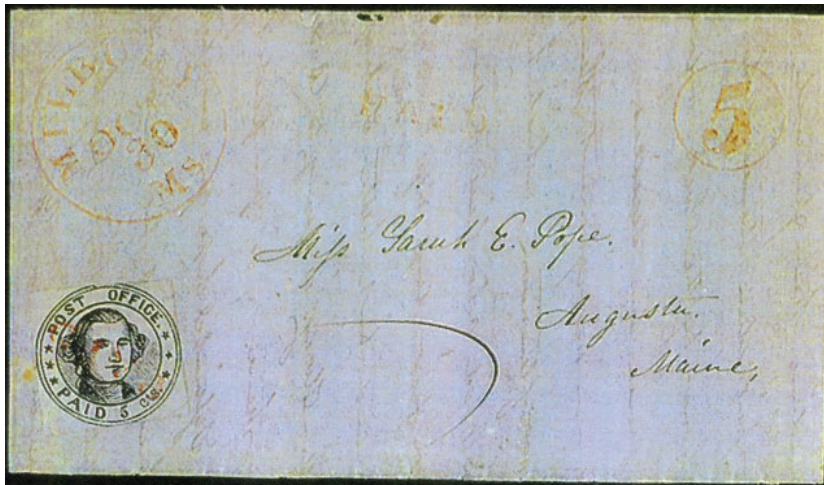 MILLBURY
OCT
30
Ms
PAID
5
Miss Sarah E. Pope.
Augusta.
Maine,
POST OFFICE.
PAID 5 Cts.